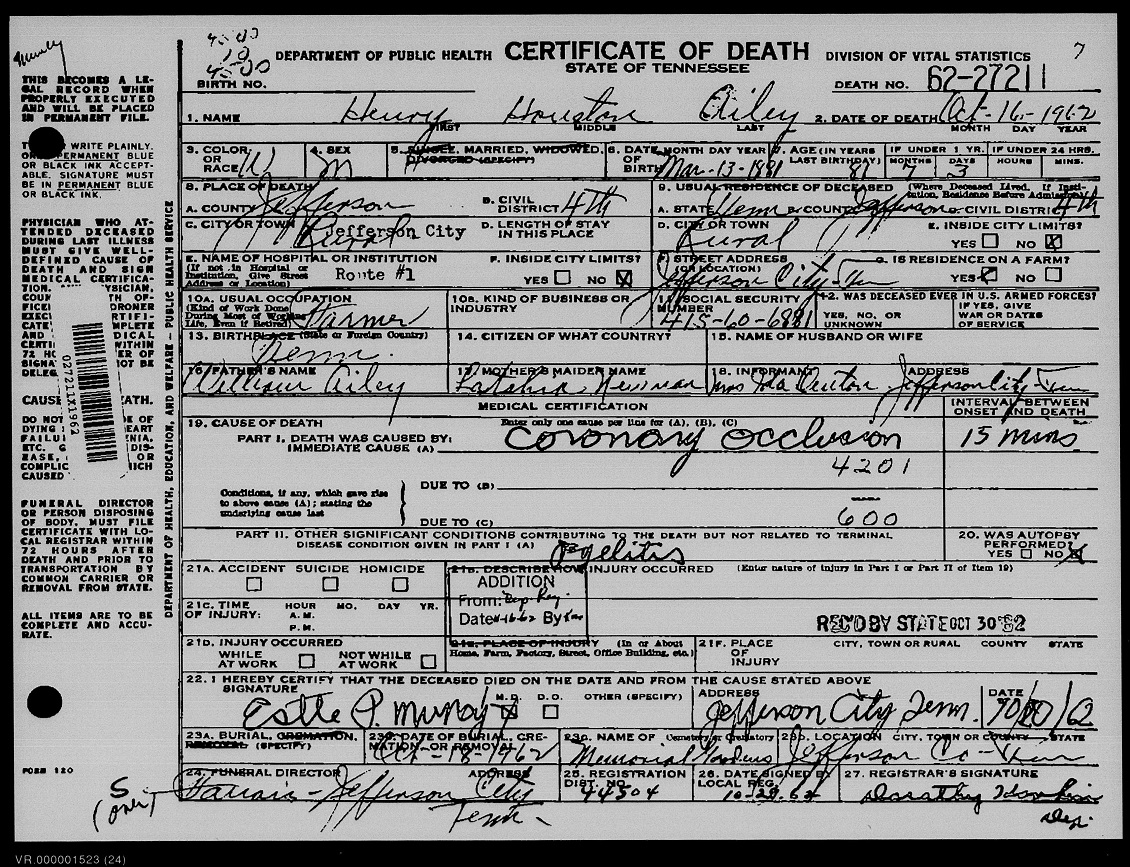 45-00
10
45-00
DEPARTMENT OF PUBLIC HEALTH CERTIFICATE OF DEATH DIVISION OF VITAL STATISTICS 7
STATE OF TENNESSEE
BIRTH NO. DEATH NO. 62-27211
1. NAME Henry Houston Ailey 2. DATE OF DEATH Oct-16-1962
FIRST MIDDLE LAST MONTH DAY YEAR
3. COLOR OR RACE W 4. SEX M 5. SINGLE, MARRIED, WIDOWED, DIVORCED (SPECIFY) 6. DATE OF BIRTH MONTH DAY YEAR Mar-13-1881 7. AGE (IN YEARS LAST BIRTHDAY) 81 IF UNDER 1 YR. MONTHS 7 DAYS 3 IF UNDER 24 HRS. HOURS MINS.
8. PLACE OF DEATH
A. COUNTY Jefferson B. CIVIL DISTRICT 4th
9. USUAL RESIDENCE OF DECEASED (Where Deceased Lived. If Institution, Residence Before Admission)
A. STATE Tenn B. COUNTY Jefferson C. CIVIL DISTRICT 4th
C. CITY OR TOWN Rural Jefferson City D. LENGTH OF STAY IN THIS PLACE
D. CITY OR TOWN Rural E. INSIDE CITY LIMITS? YES NO X
E. NAME OF HOSPITAL OR INSTITUTION (If not in Hospital or Institution, Give Street Address or Location) Route #1 F. INSIDE CITY LIMITS? YES NO X
F. STREET ADDRESS (OR LOCATION) Jefferson City-Tenn G. IS RESIDENCE ON A FARM? YES NO
10A. USUAL OCCUPATION (Kind of Work Done During Most of Working Life, Even if Retired) Farmer 10B. KIND OF BUSINESS OR INDUSTRY 11. SOCIAL SECURITY NUMBER 415-60-6881 12. WAS DECEASED EVER IN U.S. ARMED FORCES? YES, NO, OR UNKNOWN IF YES, GIVE WAR OR DATES OF SERVICE
13. BIRTHPLACE (State or Foreign Country) Tenn. 14. CITIZEN OF WHAT COUNTRY? 15. NAME OF HUSBAND OR WIFE
16. FATHER'S NAME William Ailey 17. MOTHER'S MAIDEN NAME Newman 18. INFORMANT Mrs Ida ADDRESS Jefferson City-Tenn
MEDICAL CERTIFICATION INTERVAL BETWEEN ONSET AND DEATH
19. CAUSE OF DEATH Enter only one cause per line for (A), (B), (C)
PART I. DEATH WAS CAUSED BY: IMMEDIATE CAUSE (A) Coronary Occlusion 15 mins
4201
Conditions, if any, which gave rise to above cause (A); stating the underlying cause last
DUE TO (B)
DUE TO (C) 600
PART II. OTHER SIGNIFICANT CONDITIONS CONTRIBUTING TO THE DEATH BUT NOT RELATED TO TERMINAL DISEASE CONDITION GIVEN IN PART I (A) Pyelitis
20. WAS AUTOPSY PERFORMED? YES NO X
21A. ACCIDENT SUICIDE HOMICIDE 21B. DESCRIBE HOW INJURY OCCURRED (Enter nature of injury in Part I or Part II of Item 19)
ADDITION
From: Dep. Reg.
Date By
21C. TIME OF INJURY: HOUR MO. DAY YR.
A.M.
P.M.
REC'D BY STATE OCT 30 '62
21D. INJURY OCCURRED WHILE AT WORK NOT WHILE AT WORK 21E. PLACE OF INJURY (In or About Home, Farm, Factory, Street, Office Building, etc.) 21F. PLACE OF INJURY CITY, TOWN OR RURAL COUNTY STATE
22. I HEREBY CERTIFY THAT THE DECEASED DIED ON THE DATE AND FROM THE CAUSE STATED ABOVE
SIGNATURE Estle P. Muncy M.D. X D.O. OTHER (SPECIFY) ADDRESS Jefferson City Tenn. DATE
23A. BURIAL, CREMATION, REMOVAL (SPECIFY) 23B. DATE OF BURIAL, CREMATION, OR REMOVAL Oct-18-1962 23C. NAME OF Cemetery or Crematory Memorial Gardens 23D. LOCATION CITY, TOWN OR COUNTY STATE Jefferson Co-Tenn
24. FUNERAL DIRECTOR ADDRESS Farrar's-Jefferson City Tenn- 25. REGISTRATION DIST. NO. 44504 26. DATE SIGNED BY LOCAL REG. 10-29-62 27. REGISTRAR'S SIGNATURE Dorothy
Dep.
Muncy
THIS BECOMES A LEGAL RECORD WHEN PROPERLY EXECUTED AND WILL BE PLACED IN PERMANENT FILE.
WRITE PLAINLY. PERMANENT BLUE OR BLACK INK ACCEPTABLE. SIGNATURE MUST BE IN PERMANENT BLUE OR BLACK INK.
PHYSICIAN WHO ATTENDED DECEASED DURING LAST ILLNESS MUST GIVE WELL-DEFINED CAUSE OF DEATH AND SIGN MEDICAL CERTIFICATION.
027211X1962
FUNERAL DIRECTOR OR PERSON DISPOSING OF BODY, MUST FILE CERTIFICATE WITH LOCAL REGISTRAR WITHIN 72 HOURS AFTER DEATH AND PRIOR TO TRANSPORTATION BY COMMON CARRIER OR REMOVAL FROM STATE.
ALL ITEMS ARE TO BE COMPLETE AND ACCURATE.
DEPARTMENT OF HEALTH, EDUCATION, AND WELFARE - PUBLIC HEALTH SERVICE
FORM 120
S
(over)
VR.000001523 (24)